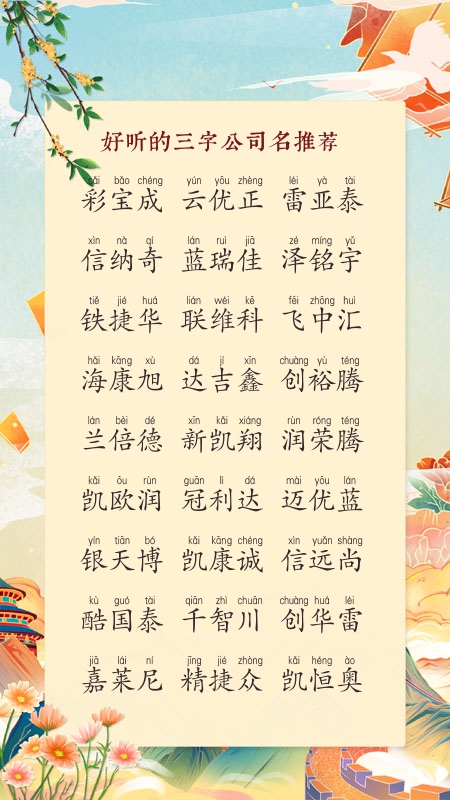 好听的三字公司名推荐
cǎi bǎo chéng yún yōu zhèng léi yà tài
彩宝成 云优正 雷亚泰
xìn nà qí lán ruì jiā zé míng yǔ
信纳奇 蓝瑞佳 泽铭宇
tiě jié huá lián wéi kē fēi zhōng huì
铁捷华 联维科 飞中汇
hǎi kāng xù dá jí xīn chuàng yù téng
海康旭 达吉鑫 创裕腾
lán bèi dé xīn kǎi xiáng rùn róng téng
兰倍德 新凯翔 润荣腾
kǎi ōu rùn guān lì dá mài yōu lán
凯欧润 冠利达 迈优蓝
yín tiān bó kǎi kāng chéng xìn yuǎn shàng
银天博 凯康诚 信远尚
kù guó tài qiān zhì chuān chuàng huá léi
酷国泰 千智川 创华雷
jiā lái ní jīng jié zhòng kǎi héng ào
嘉莱尼 精捷众 凯恒奥